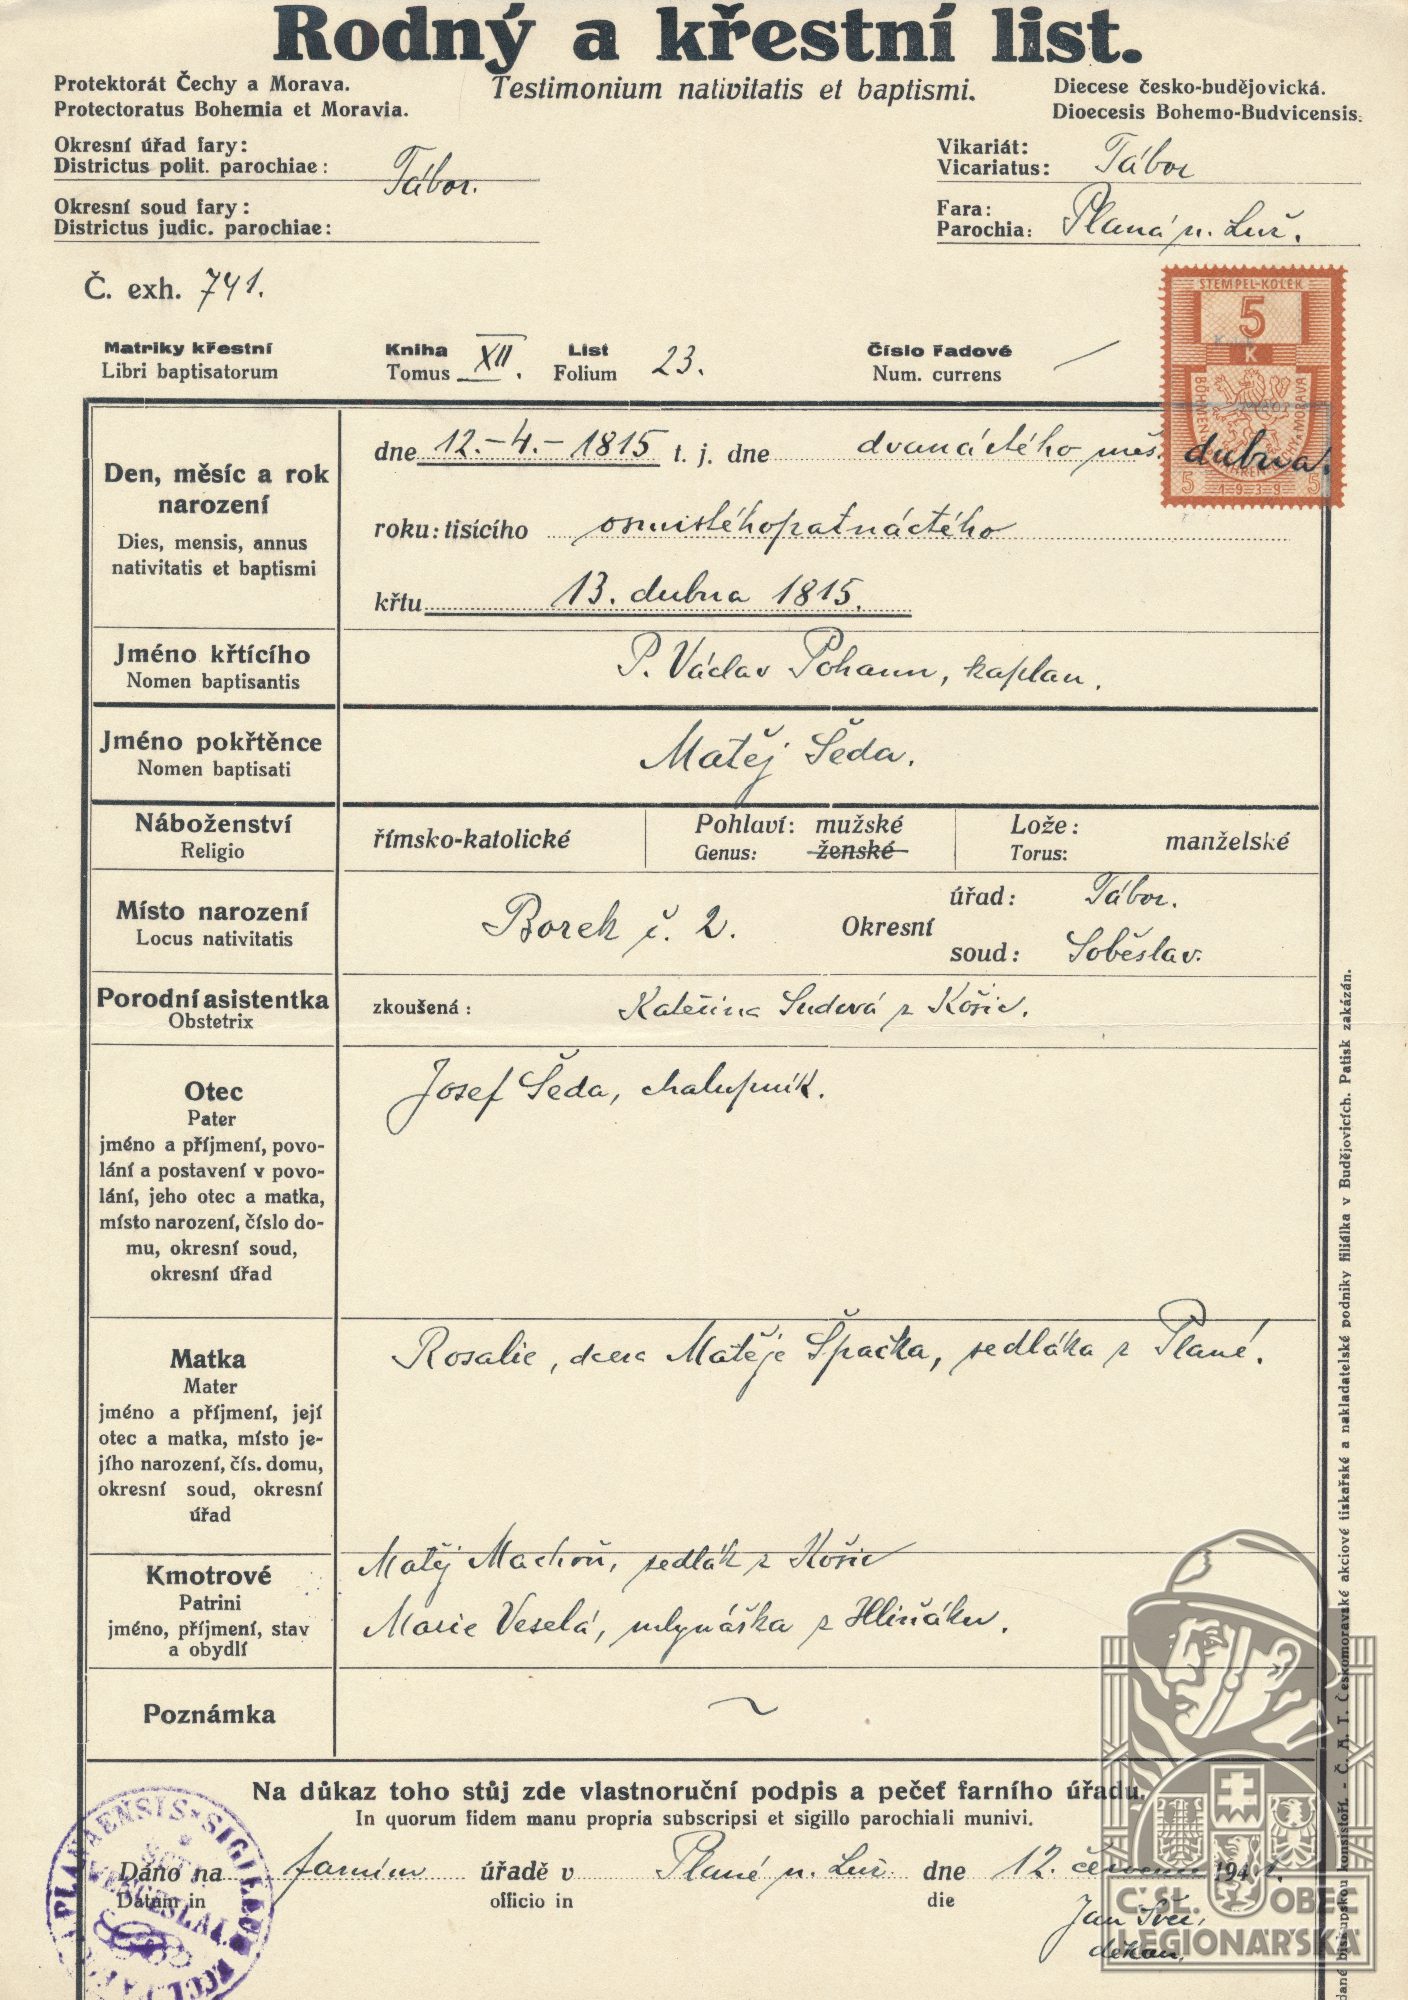 Rodný a křestní list.
Protektorát Čechy a Morava.
Protectoratus Bohemia et Moravia.
Testimonium nativitatis et baptismi.
Diecese česko-budějovická.
Dioecesis Bohemo-Budvicensis.
Okresní úřad fary:
Districtus polit. parochiae:
Tábor.
Okresní soud fary:
Districtus judic. parochiae:
Vikariát:
Vicariatus: Tábor
Fara:
Parochia: Planá n. Luž.
Č. exh. 741.
STEMPEL-KOLEK
5
K
BÖHMEN MÄHREN ČECHY A MORAVA
5 1939 5
Matriky křestní
Libri baptisatorum
Kniha
Tomus XII.
List
Folium 23.
Číslo řadové
Num. currens
Den, měsíc a rok
narození
Dies, mensis, annus
nativitatis et baptismi
dne 12.-4.-1815 t. j. dne dvanáctého měs. dubna.
roku: tisícího osmistéhopatnáctého
křtu 13. dubna 1815.
Jméno křtícího
Nomen baptisantis
P. Václav Pohann, kaplan.
Jméno pokřtěnce
Nomen baptisati
Matěj Šeda.
Náboženství
Religio
římsko-katolické
Pohlaví: mužské
Genus: ženské
Lože:
Torus:
manželské
Místo narození
Locus nativitatis
Borek č. 2.
Okresní
úřad: Tábor.
soud: Soběslav.
Porodní asistentka
Obstetrix
zkoušená: Kateřina Sudová z Košic.
Otec
Pater
jméno a příjmení, povo-
lání a postavení v povo-
lání, jeho otec a matka,
místo narození, číslo do-
mu, okresní soud,
okresní úřad
Josef Šeda, chalupník.
Matka
Mater
jméno a příjmení, její
otec a matka, místo je-
jího narození, čís. domu,
okresní soud, okresní
úřad
Rosalie, dcera Matěje Špačka, sedláka z Plané.
Kmotrové
Patrini
jméno, příjmení, stav
a obydlí
Matěj Machoň, sedlák z Košic
Marie Veselá, mlynářka z Hliňáku.
Poznámka
Na důkaz toho stůj zde vlastnoruční podpis a pečeť farního úřadu.
In quorum fidem manu propria subscripsi et sigillo parochiali munivi.
Dáno na farním úřadě v Plané n. Luž. dne 12. června 1941.
Datum in officio in die
Jan Švec,
děkan.
PLANAENSIS SIGILLUM
ČSL. OBEC
LEGIONÁŘSKÁ
konsistoří. - Č. A. T. Českomoravské akciové tiskařské a nakladatelské podniky filiálka v Budějovicích. Patisk zakázán.